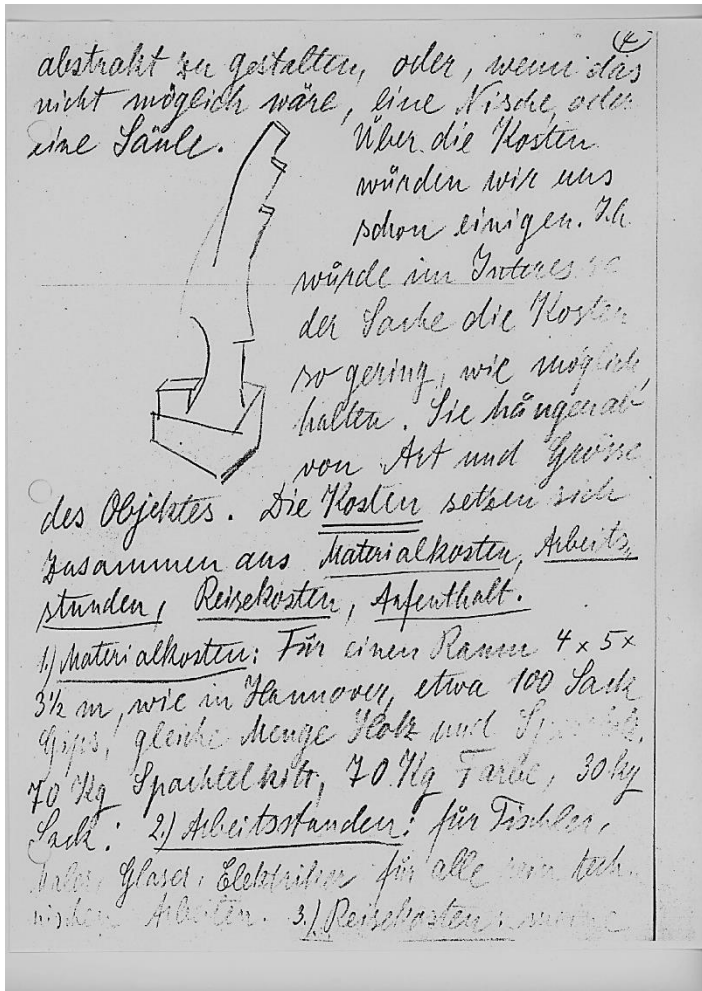 4
abstrakt zu gestalten, oder, wenn das
nicht möglich wäre, eine Nische, oder
eine Säule.
Über die Kosten
würden wir uns
schon einigen. Ich
würde im Interesse
der Sache die Kosten
so gering, wie möglich
halten. Sie hängen ab
von Art und Grösse
des Objektes. Die Kosten setzen sich
zusammen aus Materialkosten, Arbeits-
stunden, Reisekosten, Aufenthalt.
1.) Materialkosten: Für einen Raum 4 x 5 x
3½ m, wie in Hannover, etwa 100 Sack
Gips, gleiche Menge Holz und
70 Kg Spachtelkitt, 70 Kg Farbe, 30 kg
Lack. 2.) Arbeitsstunden: für Tischler,
Maler, Glaser, Elektriker für alle rein tech-
nischen Arbeiten. 3.) Reisekosten: meine